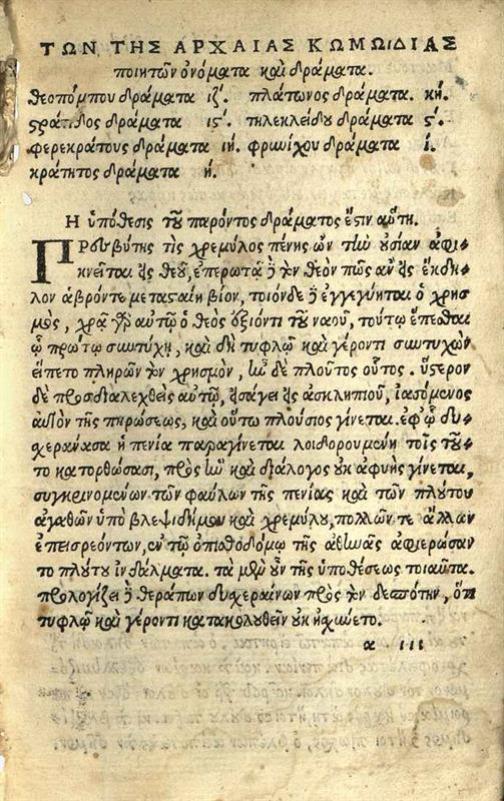 ΤΩΝ ΤΗΣ ΑΡΧΑΙΑΣ ΚΩΜΩΙΔΙΑΣ
ποιητῶν ὀνόματα καὶ δράματα.
θεοπόμπου δράματα ιζ'. πλάτωνος δράματα. κή.
στράτιδος δράματα ις'. τηλεκλείδου δράματα ς'.
φερεκράτους δράματα ιή. φρωίχου δράματα ί.
κράτητος δράματα ή.
Η ὑπόθεσις τοῦ παρόντος δράματος ἔστιν αὕτη.
ΠΡεσβύτης τὶς χρεμύλος πένης ὢν τὴν οὐσίαν ἀφι-
κνεῖται εἰς θεοῦ, ἐπερωτᾷ δὲ τὸν θεὸν πῶς ἂν εἰς ἔκδη-
λον ἁβρόν τε μετασταίη βίον, τοιόνδε δὲ ἐγγεγύηται ὁ χρησ
μὸς, χρᾷ γὰρ αὐτῷ ὁ θεὸς ἐξιόντι τοῦ ναοῦ, τούτῳ ἕπεσθαι
ᾧ πρώτῳ συντύχῃ, καὶ δὴ τυφλῷ καὶ γέροντι συντυχὼν
εἵπετο πληρῶν τὸν χρησμόν, ἦν δὲ πλοῦτος οὗτος. ὕστερον
δὲ προσδιαλεχθεὶς αὐτῷ, εἰσάγει εἰς ἀσκληπιοῦ, ἰασόμενος
αὐτὸν τῆς πηρώσεως, καὶ οὕτω πλούσιος γίνεται. ἐφ' ᾧ δυ-
χεράνασα ἡ πενία παραγίνεται λοιδορουμένη τοῖς τοῦ-
το κατορθώσασι, πρὸς ἣν καὶ διάλογος οὐκ ἀφυὴς γίνεται,
συγκρινομένων τῶν φαύλων τῆς πενίας καὶ τῶν πλούτου
ἀγαθῶν ὑπὸ βλεψιδήμου καὶ χρεμύλου, πολλῶν τε ἄλλων
ἐπεισρεόντων, ἐν τῷ ὀπισθοδόμῳ τῆς ἀθηνᾶς ἀφιερώσαν
το πλούτου ἰνδάλματα. τὰ μὲν οὖν τῆς ὑποθέσεως τοιαῦτα.
προλογίζει δὲ θεράπων δυσχεραίνων πρὸς τὸν δεσπότην, ὅτι
τυφλῷ καὶ γέροντι κατακολουθεῖν οὐκ ᾐσχύνετο.
α iii